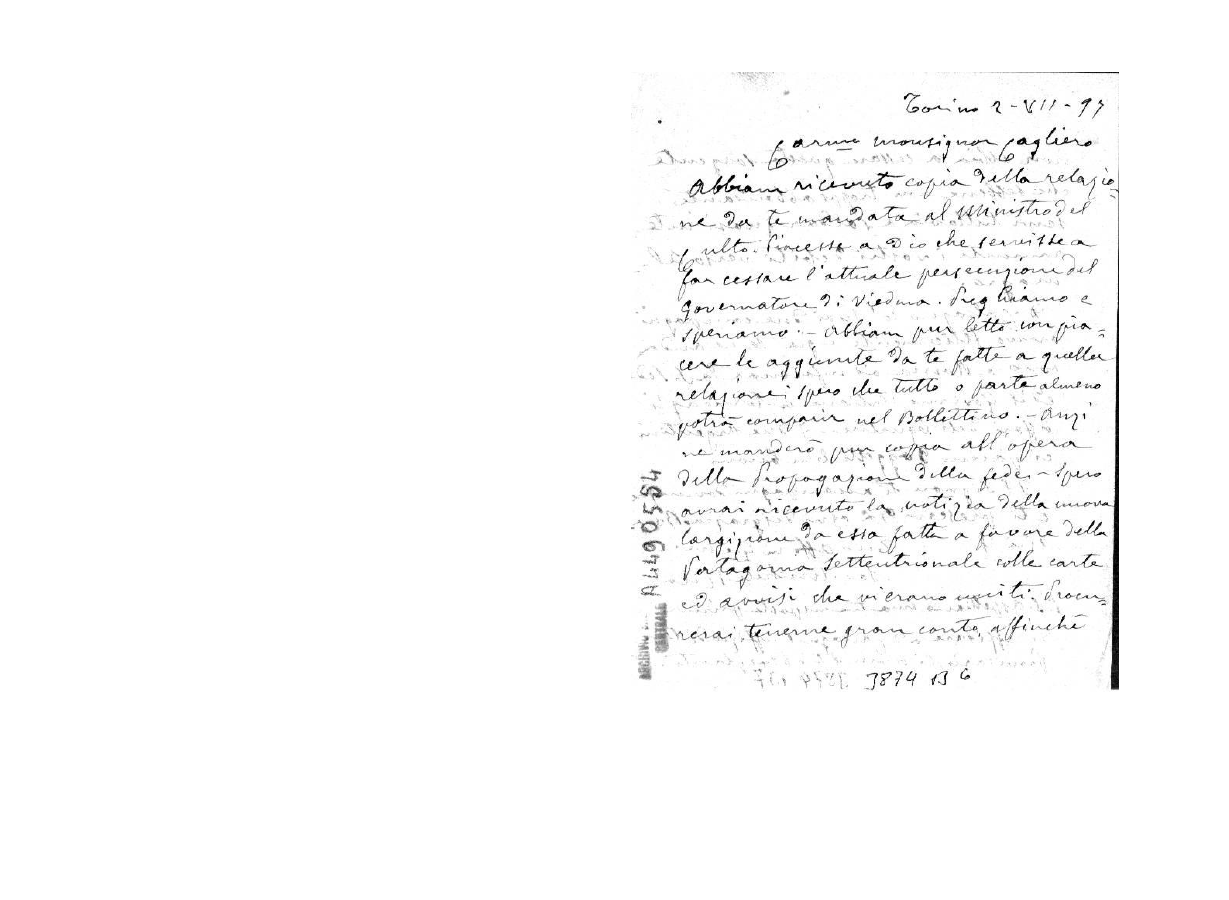 Torino 2-VII-97
Carme monsignor Cagliero
Abbiam ricevuto copia della relazio-
ne da te mandata al Ministro del
Culto. Piacesse a Dio che servisse a
far cessare l'attuale persecuzione del
Governatore di Viedma. Preghiamo e
speriamo. - Abbiam pur letto con pia=
cere le aggiunte da te fatte a quella
relazione; spero che tutto o parte almeno
potrà comparir nel Bollettino. - Anzi
ne manderò pur copia all'opera
della Propagazione della fede. - Spero
avrai ricevuto la notizia della nuova
largizione da essa fatta a favore della
Patagonia Settentrionale colle carte
ed avvisi che vi erano uniti. Procu=
rerai tenerne gran conto affinchè
3874 B 6
A4490554
ARCHIVIO
CENTRALE